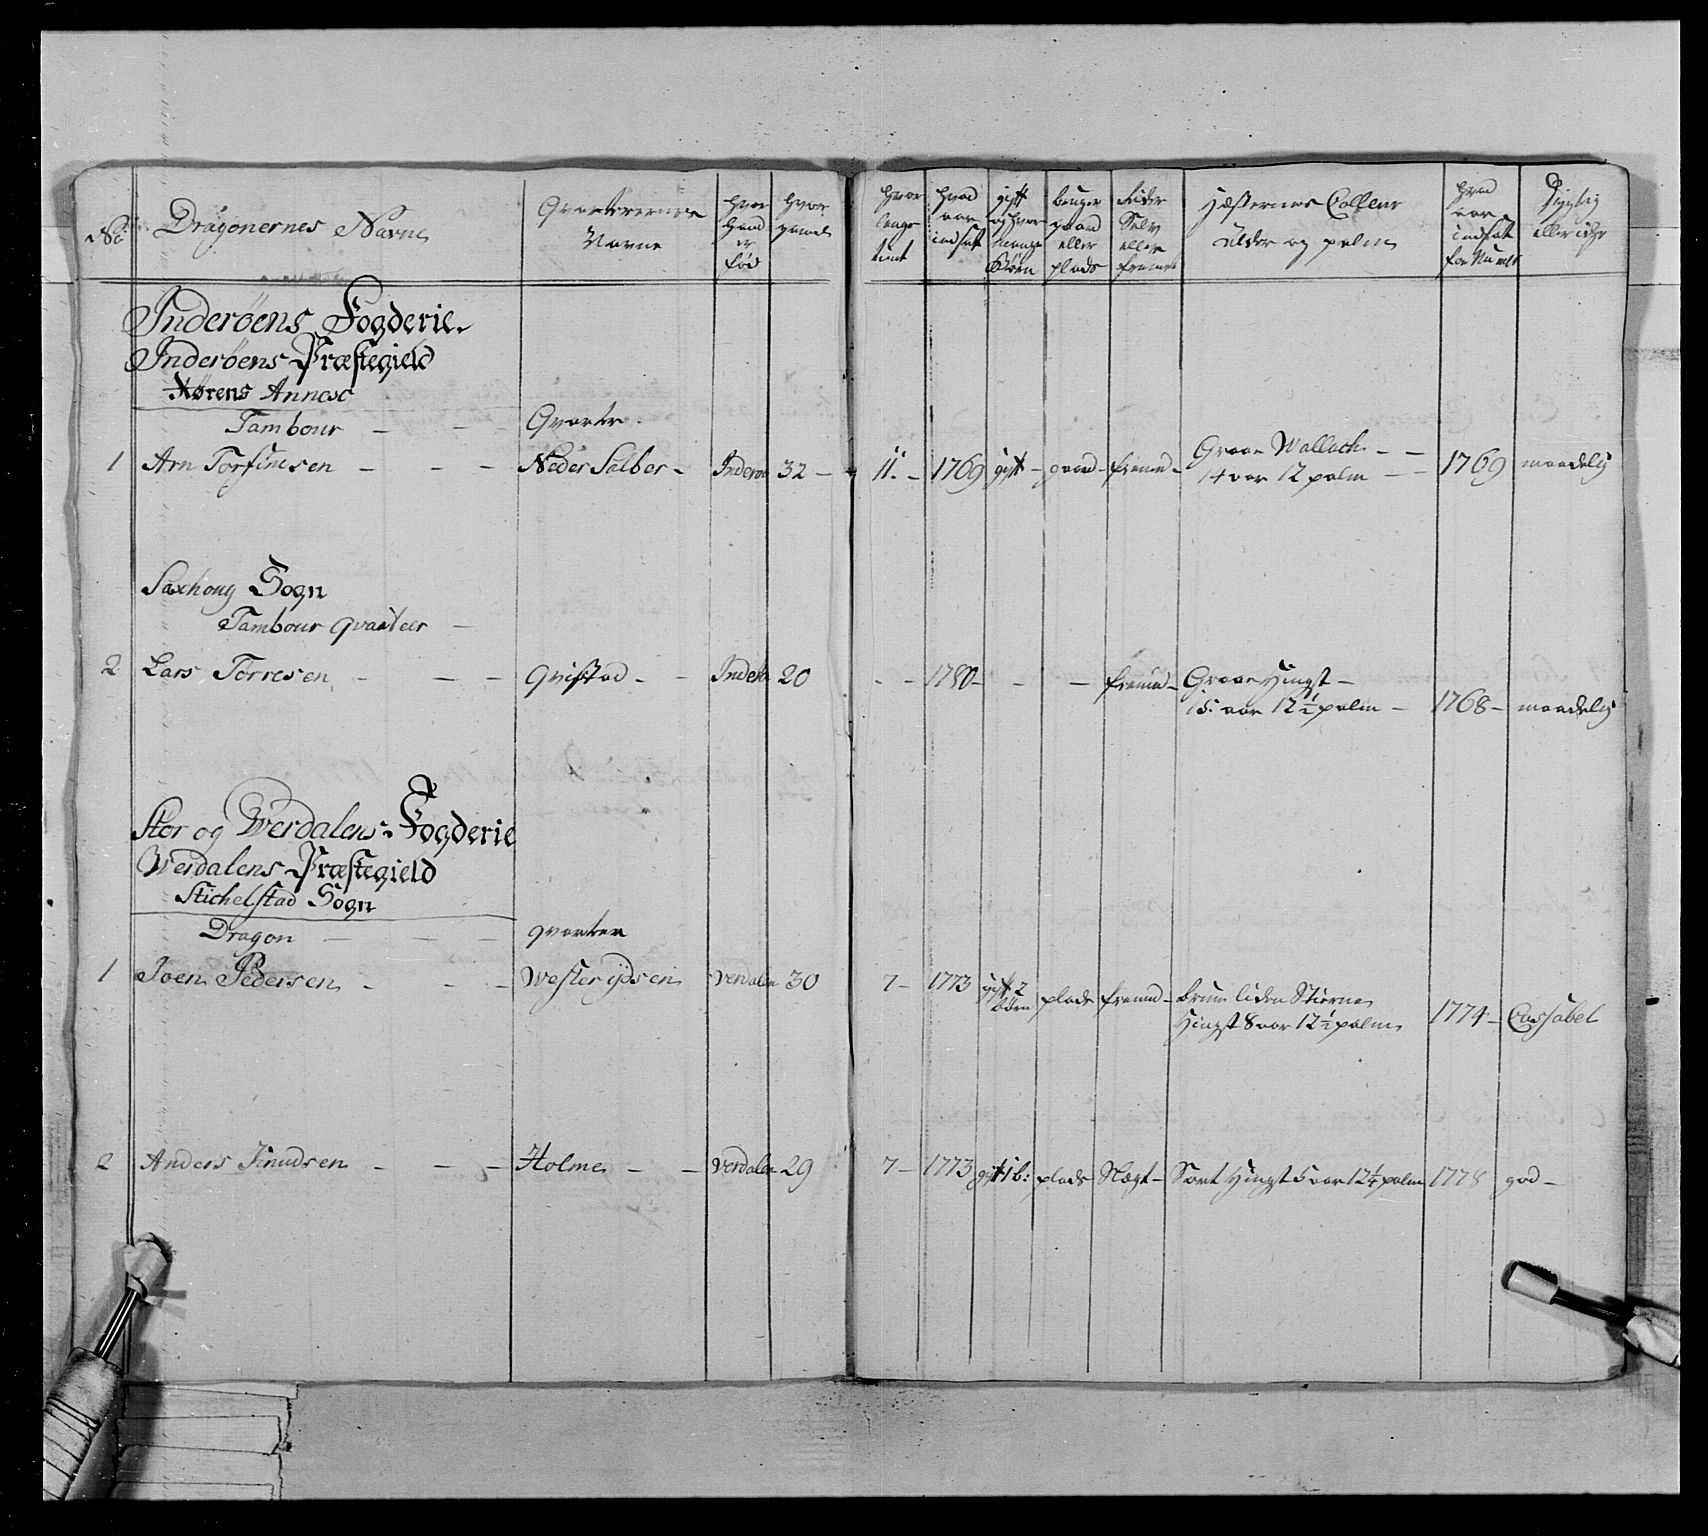 No
Dragonernes Navne
Qvarterernes
Navne
hvor
hand
er
fød
hvor
gamel
hvor
lenge
tient
hvad
aar
indsat
gift
og hvor
mange
Børn
bruger
gaard
eller
plads
Rider
Selv
eller
fremmet
Hæsternes Colleur
alder og palm
hvad
aar
indsat
for Numer
Dygtig
eller ikke
Inderøens Fogderie.
Inderøens Præstegield
Hørens Annese
Tambour - - - Qvarter
1 Arn Torfinesen - - - Neder Salber - Inderøe 32 - 11. - 1769 gift - gaard - fremd - Graae Wallach - -
14 aar 12 palm - - 1769 maadelig
Saxhoug Sogn
Tambour qvarteer -
2 Lars Torresen - - - Qvistad - - Inderøe 20 - - 1780 - - - fremd - Graae Hingst -
15: aar 12½ palm - 1768 - maadelig
Stor og Werdalens Fogderie
Werdalens Præstegield
Stichelstad Sogn
Dragon - - - qvarter
1 Joen Pedersen - - - Wester ydsen Verdalen 30 7 - 1773 gift 2
Børn plads fremd - brun liden Stierne
Hingst 8 aar 12½ palm 1774 - Cassabel
2 Anders Knudsen - - - Holme - - Verdalen 29 7 - 1773 gift 1 b: plads Slægt - Sort Hingst 5 aar 12¼ palm 1778 god -